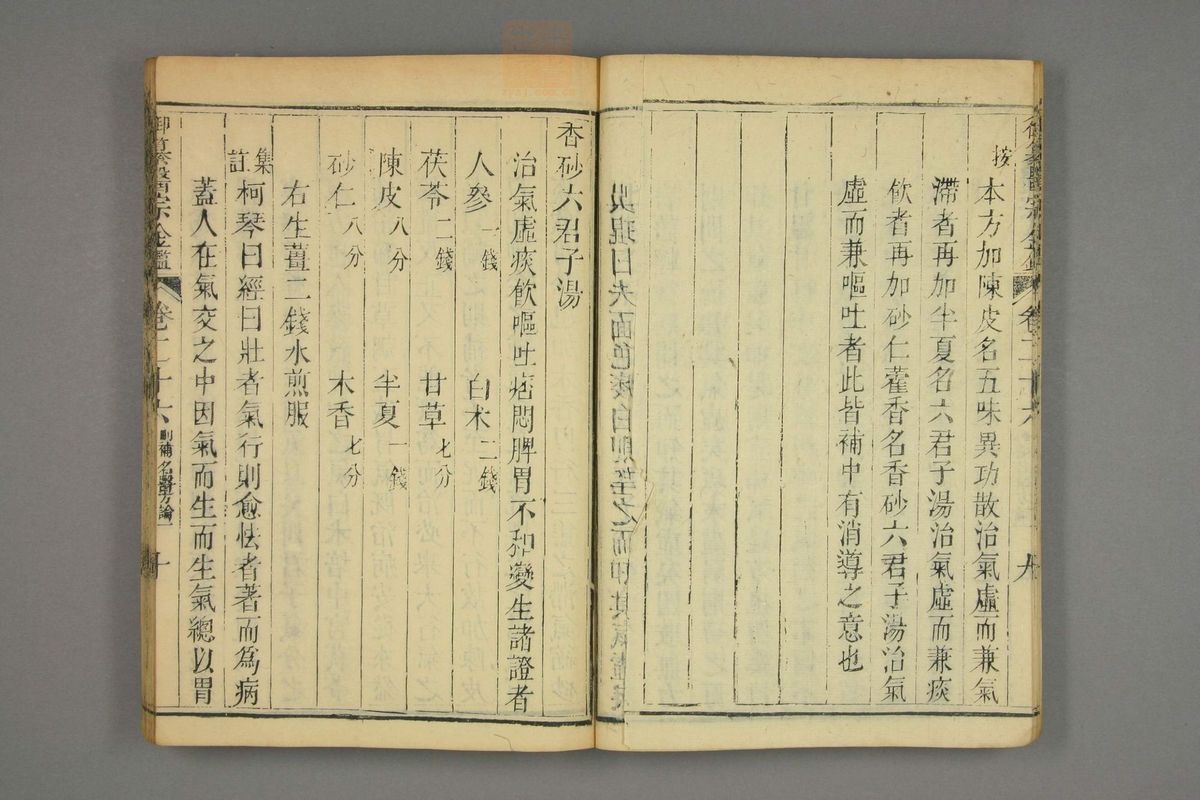 按本方加陳皮名五味異功散治氣虛而兼氣
滯者再加半夏名六君子湯治氣虛而兼痰
飲者再加砂仁藿香名香砂六君子湯治氣
虛而兼嘔吐者此皆補中有消導之意也
吳琨曰夫面色痿白則望之而知其氣虛矣
香砂六君子湯
治氣虛痰飲嘔吐痞悶脾胃不和變生諸證者
人參一錢 白朮二錢
茯苓二錢 甘草七分
陳皮八分 半夏一錢
砂仁八分 木香七分
右生薑二錢水煎服
集註柯琴曰經曰壯者氣行則愈怯者著而爲病
蓋人在氣交之中因氣而生而生氣總以胃
御纂醫宗金鑑 卷二十六 刪補名醫方論 十